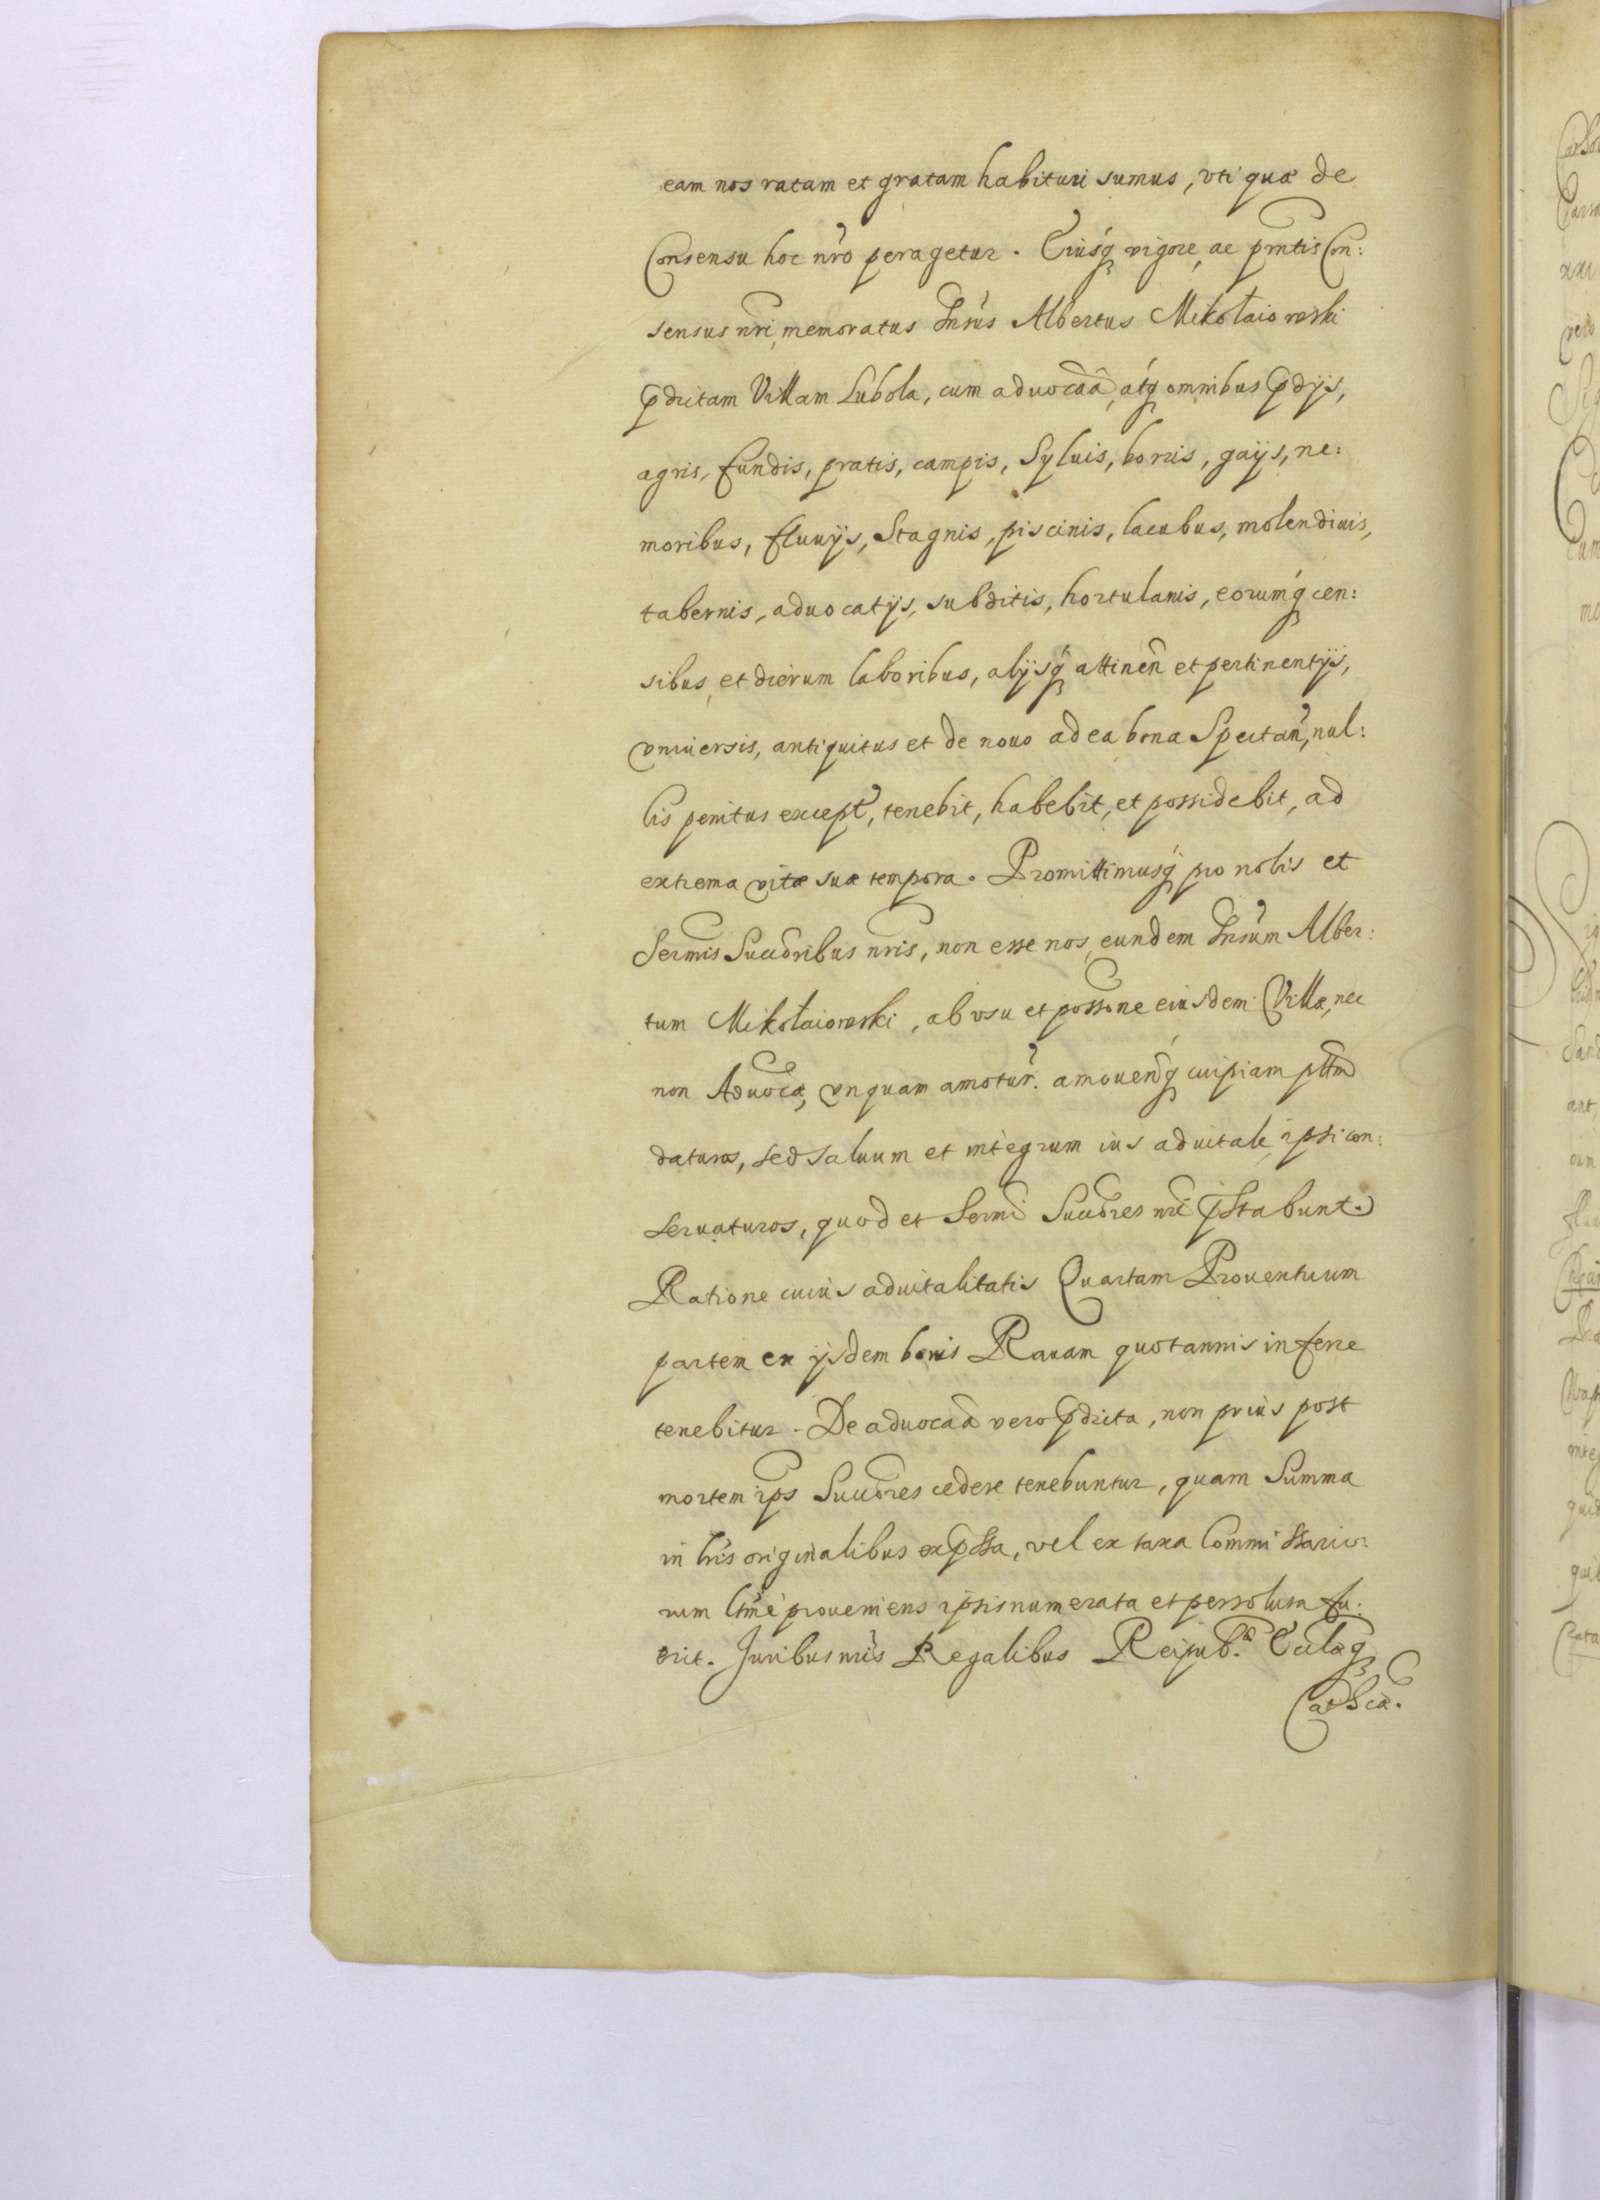 eam nos ratam et gratam habituri sumus, vti quæ de
Consensu hoc nro peragetur. Eiusq vigore, ac pntis Con:
sensus nri, memoratus Gnsus Albertus Mikołaiowski
pdictam Villam Lubola, cum aduocaa, atq omnibus pdijs,
agris, fundis, pratis, campis, Syluis, borris, gaijs, ne:
moribus, fluuijs, Stagnis, piscinis, lacubus, molendinis,
tabernis, aduocatijs, subditis, hortulanis, eorumq cen:
sibus, et dierum laboribus, alijsq attinen et pertinentijs,
vniuersis, antiquitus et de nouo ad ea bona Spectan, nul:
lis penitus except, tenebit, habebit, et possidebit, ad
extrema vitæ suæ tempora. Promittimusq pro nobis et
Sermis Succoribus nris, non esse nos, eundem Gnsum Alber:
tum Mikołaiowski, ab vsu et possone eiusdem Villæ, nec
non Aduocæ, vnquam amotur. amouendq cuipiam pttm
daturos, sed saluum et integrum ius aduitale, ipsi con:
seruaturos, quod et Sermi Succores nri pstabunt.
Ratione cuius aduitalitatis Quartam Prouentuum
partem ex ijsdem bonis Rauam quotannis inferre
tenebitur. De aduocaa vero pdicta, non prius post
mortem ips Succores cedere tenebuntur, quam Summa
in lris originalibus expssa, vel ex taxa Commissario:
rum ltme proueniens ipsis numerata et persoluta fu:
erit. Juribus nris Regalibus Reipub. Ecclæq
Cathcæ.